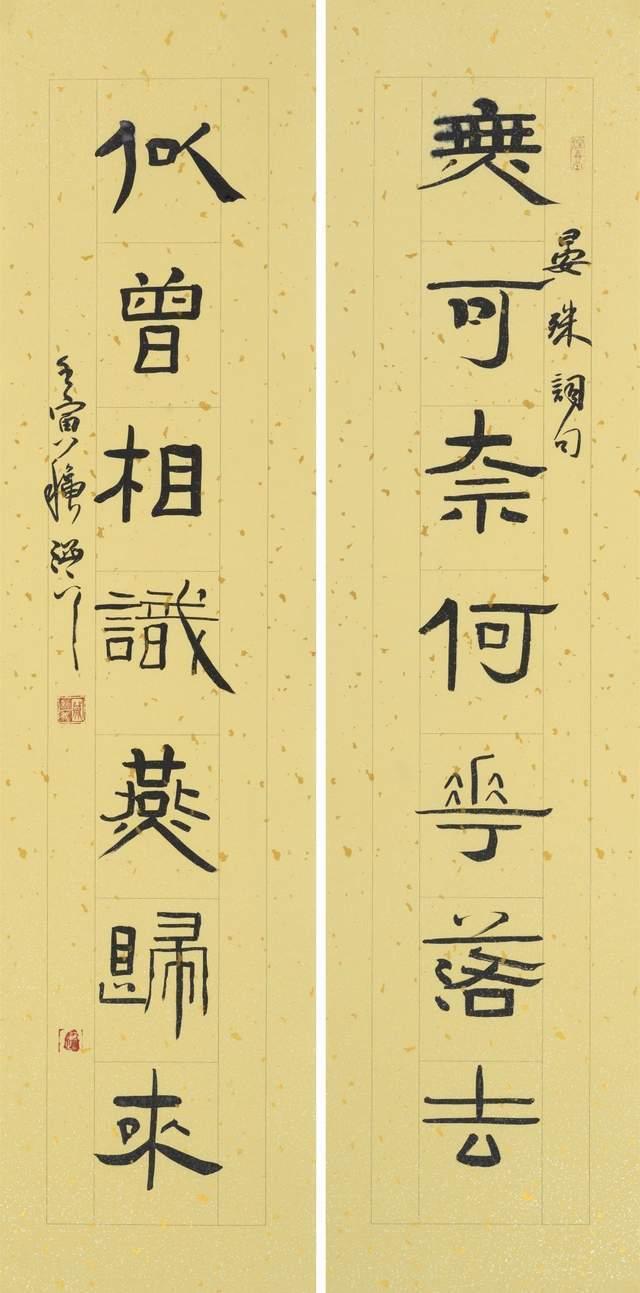 無可奈何花落去
晏殊詞句
似曾相識燕歸來
壬寅八